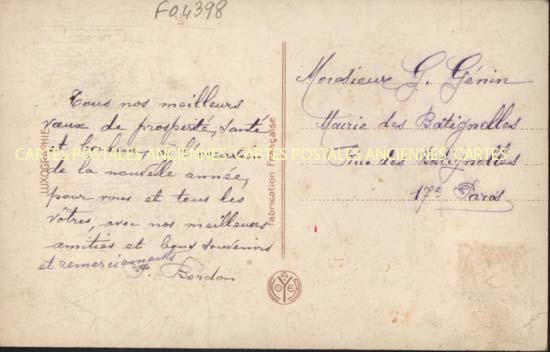 F04398
Tous nos meilleurs
vœux de prosperté, santé
et
de la nouvelle année,
pour vous et tous les
vôtres, avec nos meilleures
amitiés et bons souvenirs
et remerciements
P. Bordon
LUXOGRAPHIE
Fabrication Française
Monsieur G. Génin
Mairie des Batignolles
Rue des Batignolles
17e Paris
CARTES POSTALES ANCIENNES, CARTES POSTALES ANCIENNES, CARTES POSTALES ANCIENNES